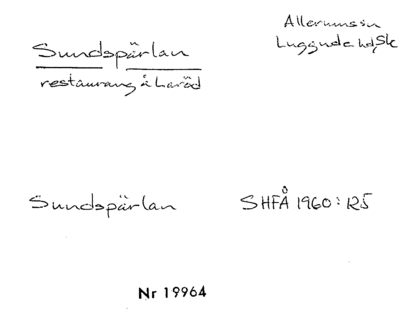 Sundspärlan
restaurang å Laröd
Allerums sn
Luggude hd, Sk
Sundspärlan
SHFÅ 1960: 125
Nr 19964